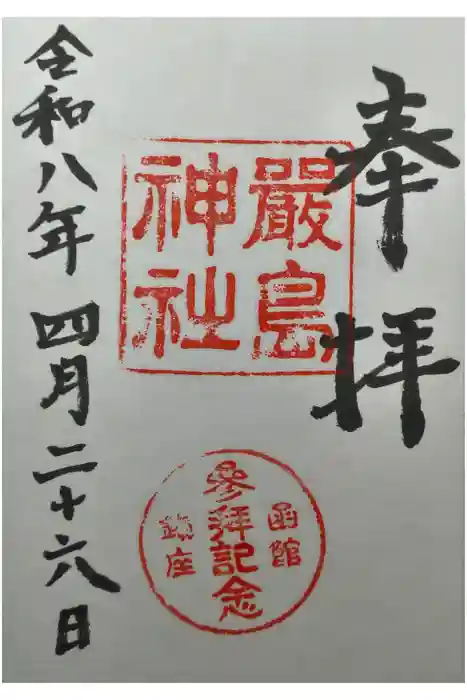 奉拝
嚴島
神社
函館
參拝記念
鎮座
令和八年四月二十六日